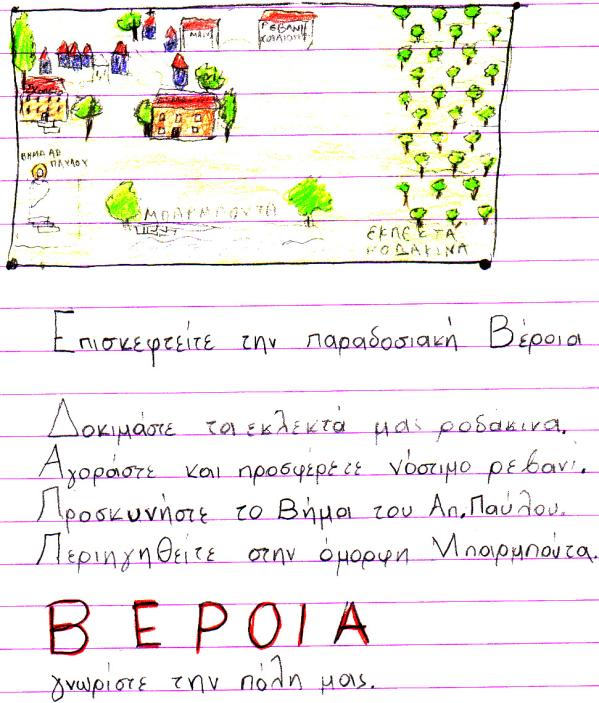 ΡΕΒΑΝΙ
ΒΗΜΑ ΑΠ
ΠΑΥΛΟΥ
ΜΠΑΡΜΠΟΥΤΑ
ΕΚΛΕΚΤΑ
ΡΟΔΑΚΙΝΑ
Επισκεφτείτε την παραδοσιακή Βέροια
Δοκιμάστε τα εκλεκτά μας ροδάκινα.
Αγοράστε και προσφέρετε νόστιμο ρεβανί.
Προσκυνήστε το Βήμα του Απ. Παύλου.
Περιηγηθείτε στην όμορφη Μπαρμπούτα.
ΒΕΡΟΙΑ
γνωρίστε την πόλη μας.